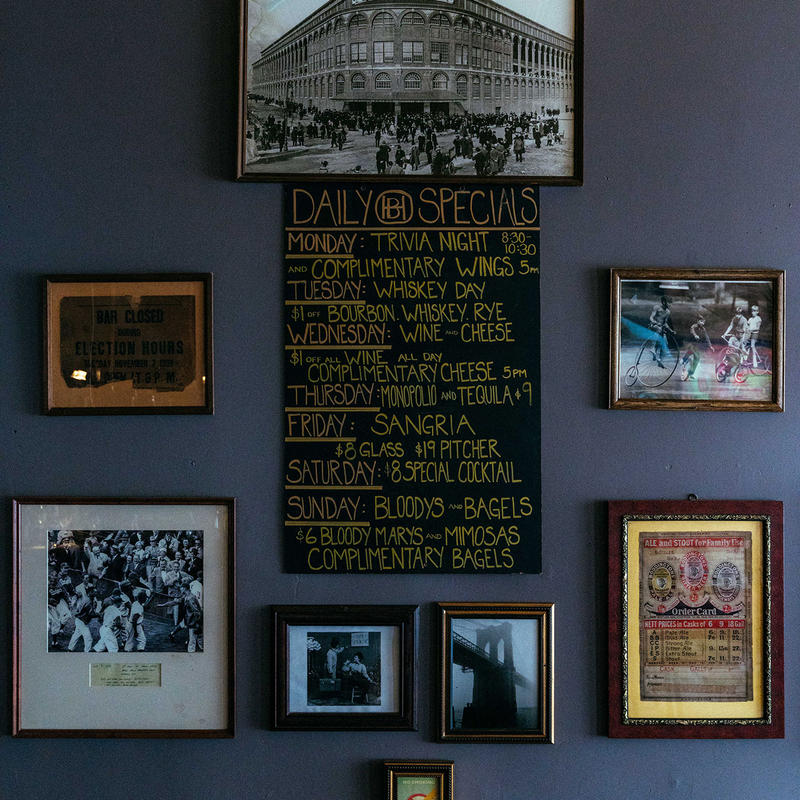 DAILY BH SPECIALS
MONDAY: TRIVIA NIGHT 8:30-
10:30
AND COMPLIMENTARY WINGS 5PM
TUESDAY: WHISKEY DAY
$1 OFF BOURBON. WHISKEY. RYE
WEDNESDAY: WINE AND CHEESE
$1 OFF ALL WINE ALL DAY
COMPLIMENTARY CHEESE 5PM
THURSDAY: MONOPOLIO AND TEQUILA $9
FRIDAY: SANGRIA
$8 GLASS $19 PITCHER
SATURDAY: $8 SPECIAL COCKTAIL
SUNDAY: BLOODYS AND BAGELS
$6 BLOODY MARYS AND MIMOSAS
COMPLIMENTARY BAGELS
BAR CLOSED
DURING
ELECTION HOURS
TUESDAY NOVEMBER 7
OPEN AT 8 P.M.
ALE and STOUT for Family Use
Order Card
NETT PRICES in Casks of 6 9 18 Gall
Pale Ale
Mild Ale
Strong Ale
Bitter Ale
Extra Stout
Stout
NO SMOKING